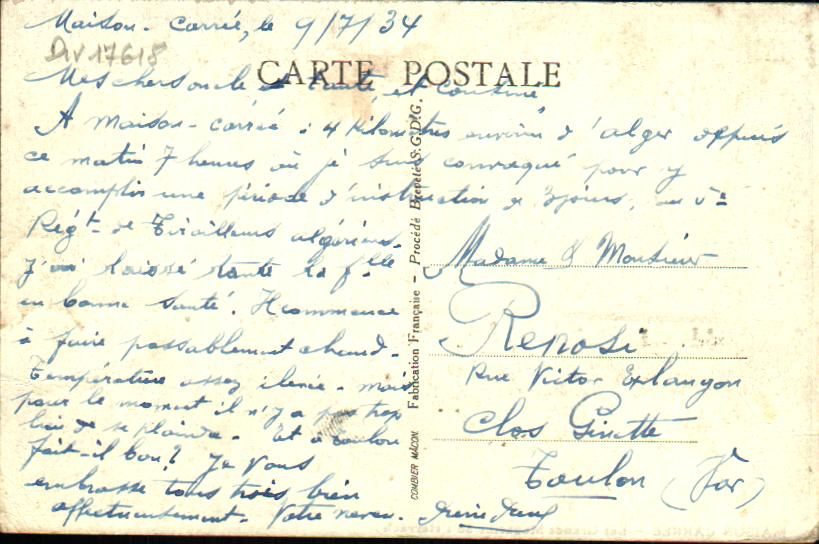 Maison-Carrée, le 9/7/34
DIV17618
CARTE POSTALE
Mes chers oncle tante et Cousine
A maison-carrée : 4 kilomètres environ d'alger depuis
ce matin 7 heures où je suis convoqué pour y
accomplir une période d'instruction de jours, au 5e
Régt. de Tirailleurs algériens.
J'ai laissé toute la flle
en bonne santé. Il commence
à faire passablement chaud.
Température assez élevée. mais
pour le moment il n'y a pas trop
lieu de se plaindre. Et à Toulon
fait-il bon? Je vous
embrasse tous trois bien
affectueusement. Votre neveu.
COMBIER MACON Fabrication Française - Procédé Breveté S.G.D.G.
Madame & Monsieur
Reposi
Rue Victor Erlangon
Clos Ginette
Toulon (Var)